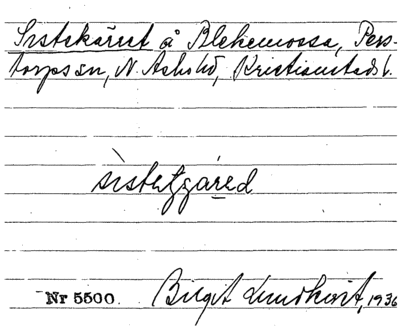 Sistekärret å Blekemossa, Pers-
torps sn, N. Åsbo hd, Kristianstads l.
sìstetjǥäred
Nr 5500. Birgit Lundkvist, 1936